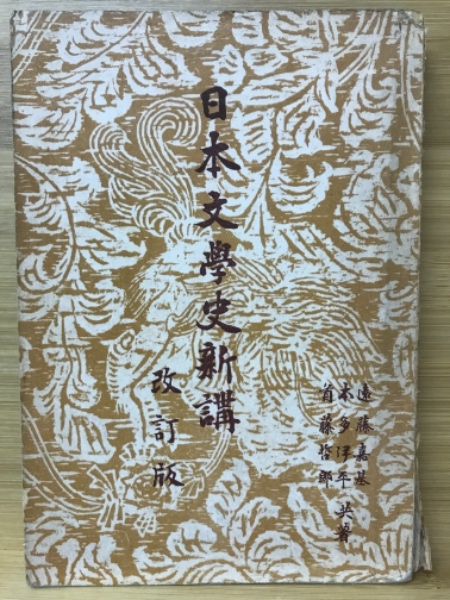 日本文學史新講
改訂版
遠藤嘉基
本多伊平
首藤哲郎
共著